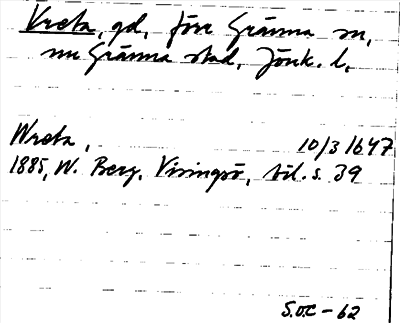 Vreta, gd, förr Gränna sn,
nu Gränna stad, Jönk. l,
Wreta, 10/3 1647
1885, W. Berg, Visingsö, bil. s. 39
S.O.C - 62